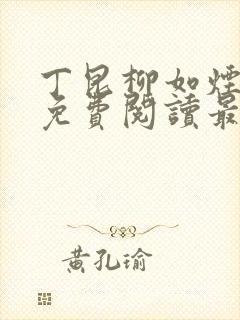 丁昆柳如煙
免費閱讀最
黃孔瑜